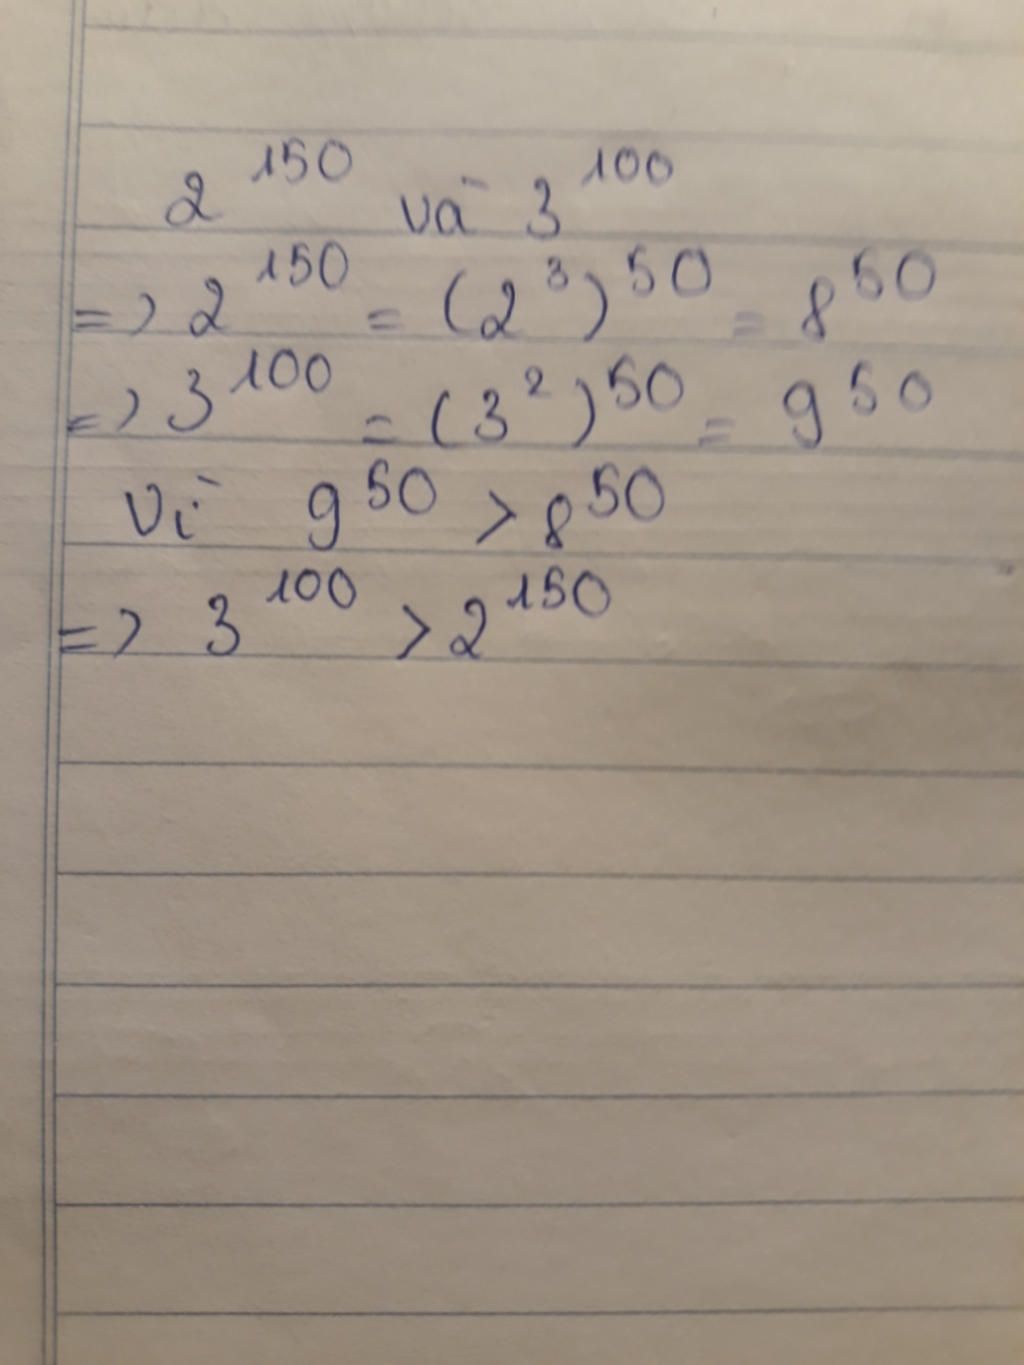 2^150 và 3^100
=> 2^150 = (2^3)^50 = 8^50
=> 3^100 = (3^2)^50 = 9^50
Vì 9^50 > 8^50
=> 3^100 > 2^150